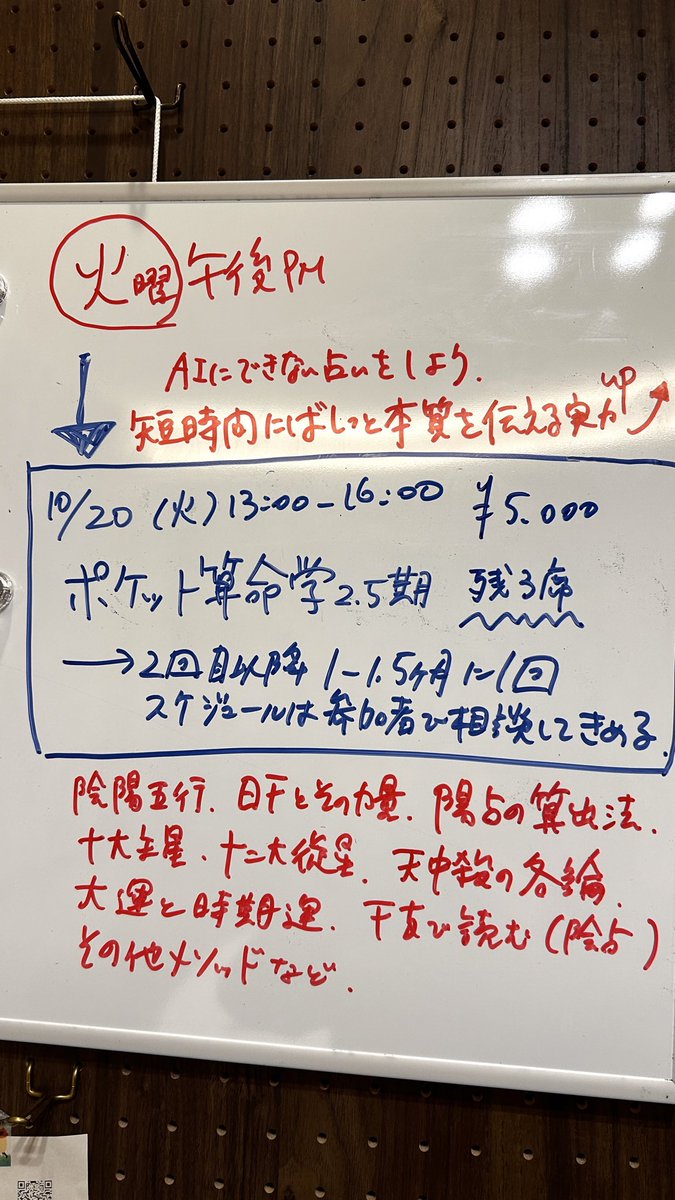 火曜 午後PM
AIにできない占いをしよう.
短時間にばしっと本質を伝える実力up
10/20 (火) 13:00-16:00 ¥5.000
ポケット算命学2.5期 残3席
→2回目以降 1-1.5ヶ月に1回
スケジュールは参加者で相談してきめる.
陰陽五行. 日干とその力量. 陽占の算出法.
十大主星. 十二大従星. 天中殺の各論.
大運と時期運. 干支で読む(陰占)
その他メソッドなど.